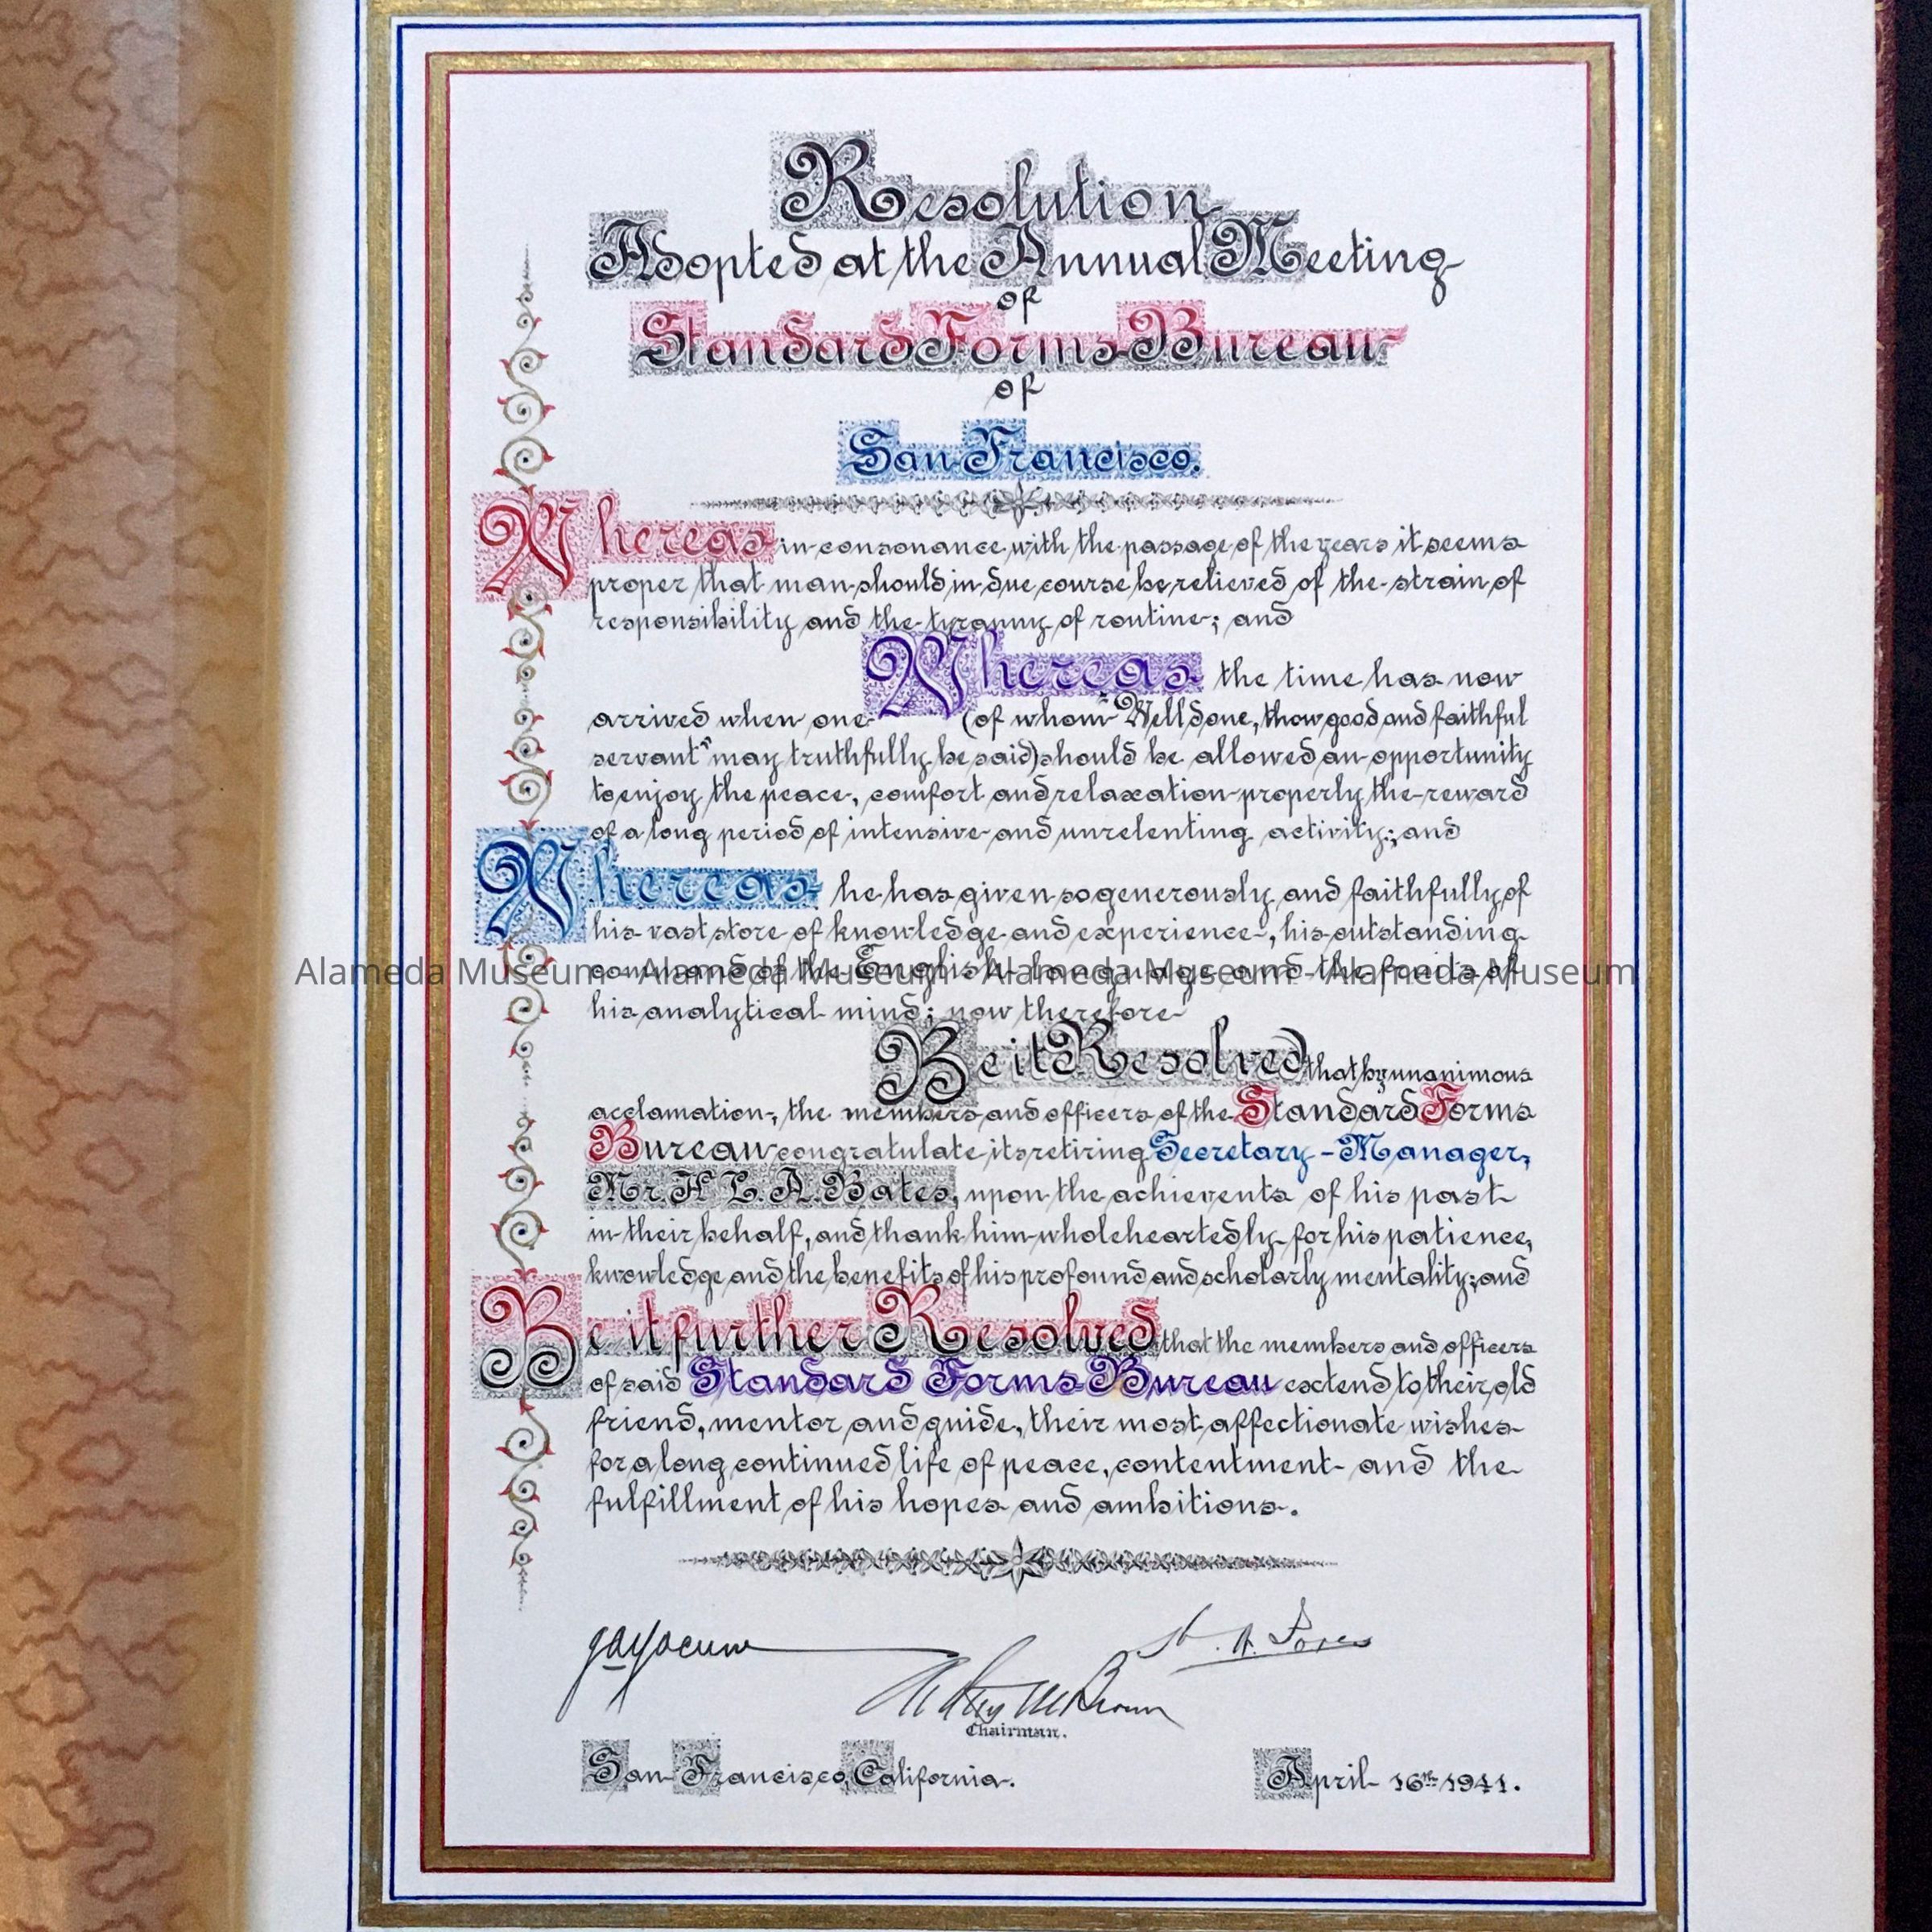 Resolution
Adopted at the Annual Meeting
of
Standard Forms Bureau
of
San Francisco.
Whereas in consonance with the passage of the years it seems
proper that man should in due course be relieved of the strain of
responsibility and the tyranny of routine; and
Whereas the time has now
arrived when one (of whom "Well done, thou good and faithful
servant" may truthfully be said) should be allowed an opportunity
to enjoy the peace, comfort and relaxation properly the reward
of a long period of intensive and unrelenting activity; and
Whereas he has given so generously and faithfully of
his vast store of knowledge and experience, his outstanding
command of the English language and the fruits of
Alameda Museum - Alameda Museum - Alameda Museum - Alameda Museum
his analytical mind; now therefore
Be it Resolved that by unanimous
acclamation, the members and officers of the Standard Forms
Bureau congratulate its retiring Secretary-Manager,
Mr. H L. A. Bates, upon the achievents of his past
in their behalf, and thank him wholeheartedly for his patience,
knowledge and the benefits of his profound and scholarly mentality; and
Be it further Resolved that the members and officers
of said Standard Forms Bureau extend to their old
friend, mentor and guide, their most affectionate wishes
for a long continued life of peace, contentment and the
fulfillment of his hopes and ambitions.
Chairman.
San Francisco, California.
April 16th 1941.